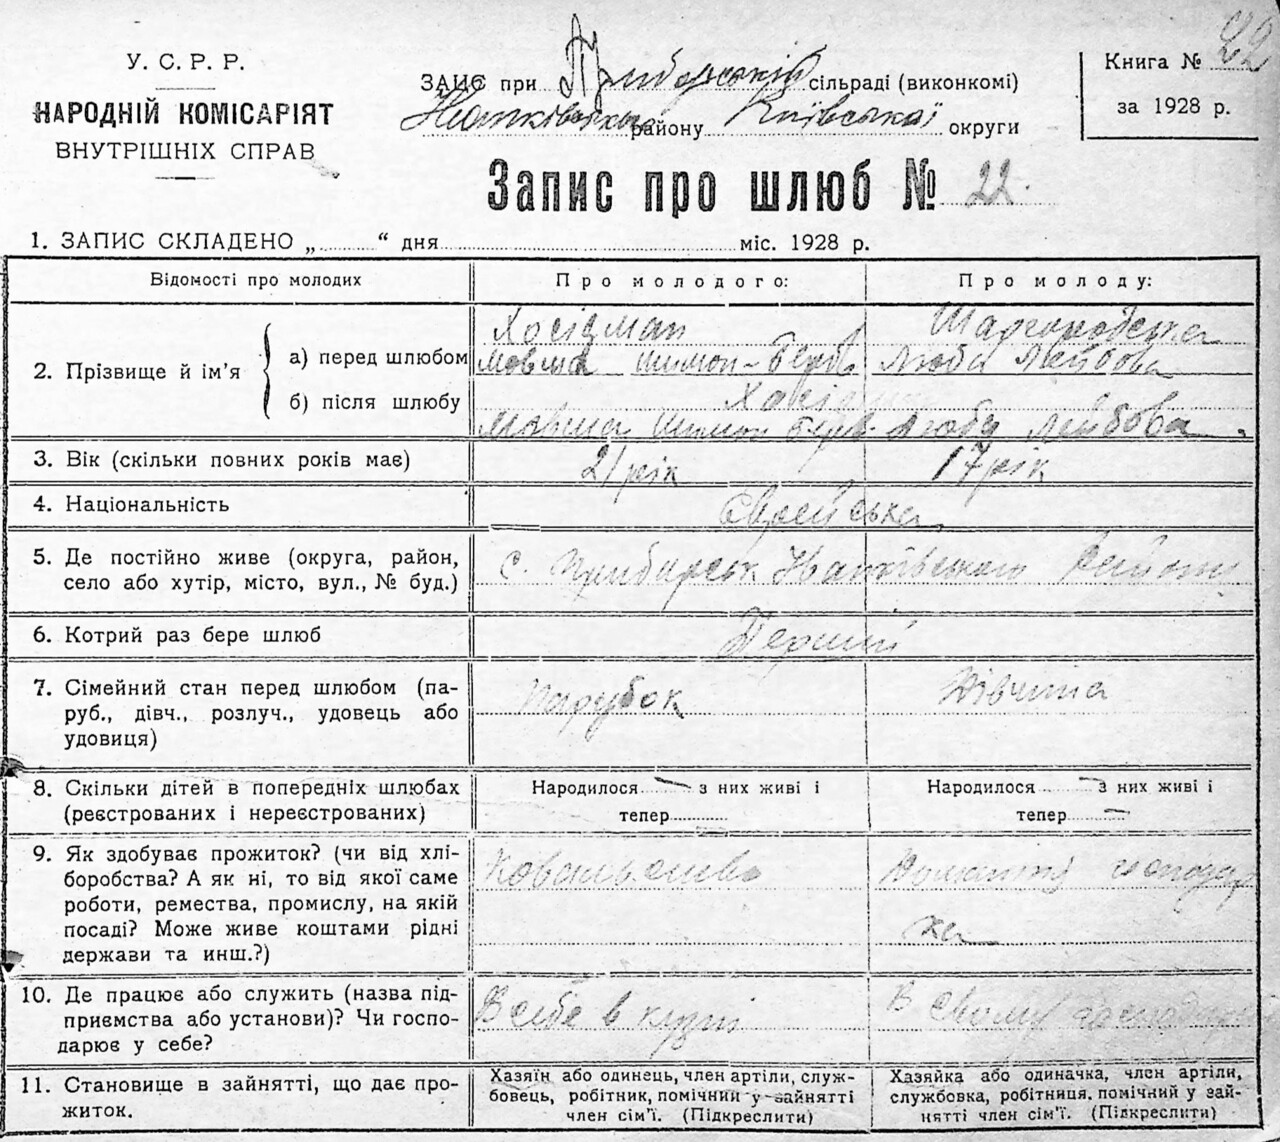 У. С. Р. Р.
НАРОДНІЙ КОМІСАРІЯТ
ВНУТРІШНІХ СПРАВ
ЗАПИС при Прибарській сільраді (виконкомі)
району Київської округи
Книга № 22
за 1928 р.
Запис про шлюб № 22.
1. ЗАПИС СКЛАДЕНО „ “ дня міс. 1928 р.
Відомості про молодих Про молодого: Про молоду:
2. Прізвище й ім'я
а) перед шлюбом
Хосідман Шаргородська
Мовша Шимон-Берів Люба Лейбова
б) після шлюбу
Мовша Шимон Берів Любу Лейбова
3. Вік (скільки повних років має) 21 рік 17 рік
4. Національність Єврейська
5. Де постійно живе (округа, район,
село або хутір, місто, вул., № буд.)
с. Прибирськ Іванківського Району
6. Котрий раз бере шлюб Перший
7. Сімейний стан перед шлюбом (па-
руб., дівч., розлуч., удовець або
удовиця)
Парубок Дівчина
8. Скільки дітей в попередніх шлюбах
(реєстрованих і нереєстрованих)
Народилося — з них живі і
тепер
Народилося — з них живі і
тепер —
9. Як здобуває прожиток? (чи від хлі-
боробства? А як ні, то від якої саме
роботи, ремества, промислу, на якій
посаді? Може живе коштами рідні
держави та инш.?)
Ковальство
Домашня господар
ка
10. Де працює або служить (назва під-
приємства або установи)? Чи госпо-
дарює у себе?
В себе в кузні
В свому
11. Становище в зайнятті, що дає про-
житок.
Хазяїн або одинець, член артіли, служ-
бовець, робітник, помічний у зайнятті
член сім'ї. (Підкреслити)
Хазяйка або одиначка, член артіли,
службовка, робітниця, помічний у зай-
нятті член сім'ї. (Підкреслити)